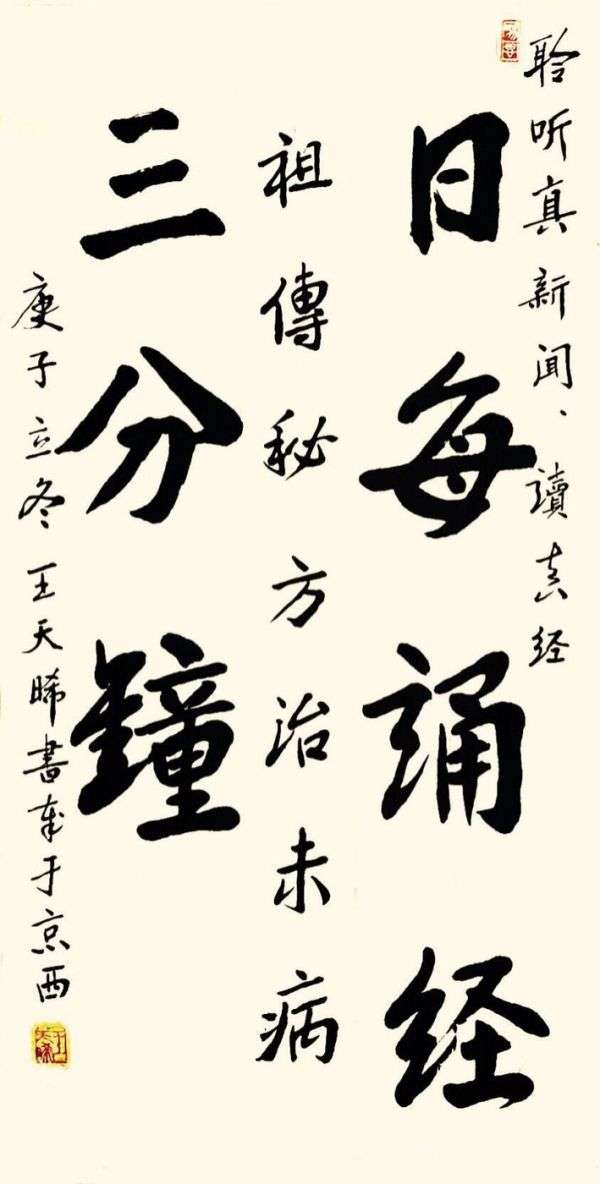 聆听真新闻、讀真经
日每誦经
祖傳秘方治未病
三分鐘
庚子立冬王天晞書奉于京西